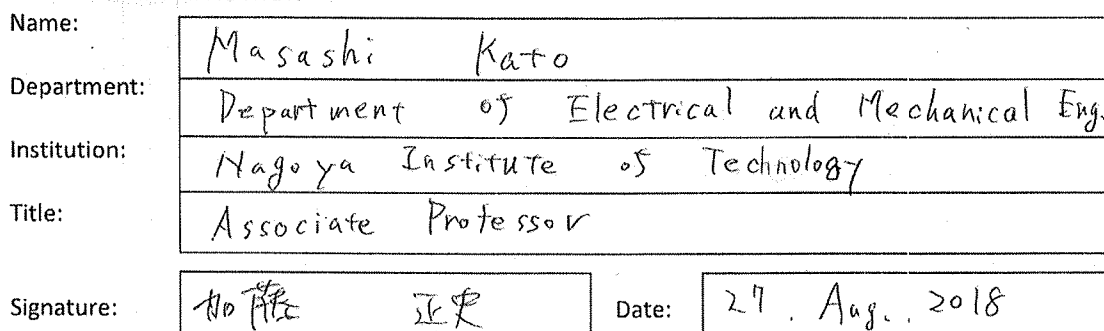 Name: Masashi Kato
Department: Department of Electrical and Mechanical Eng.
Institution: Nagoya Institute of Technology
Title: Associate Professor
Signature: 加藤 正史 Date: 27. Aug.. 2018